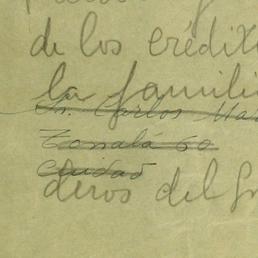 de los crédito
la famili
Sr. Carlos Ma
Tonalá 60
Ciudad
deros del Gr